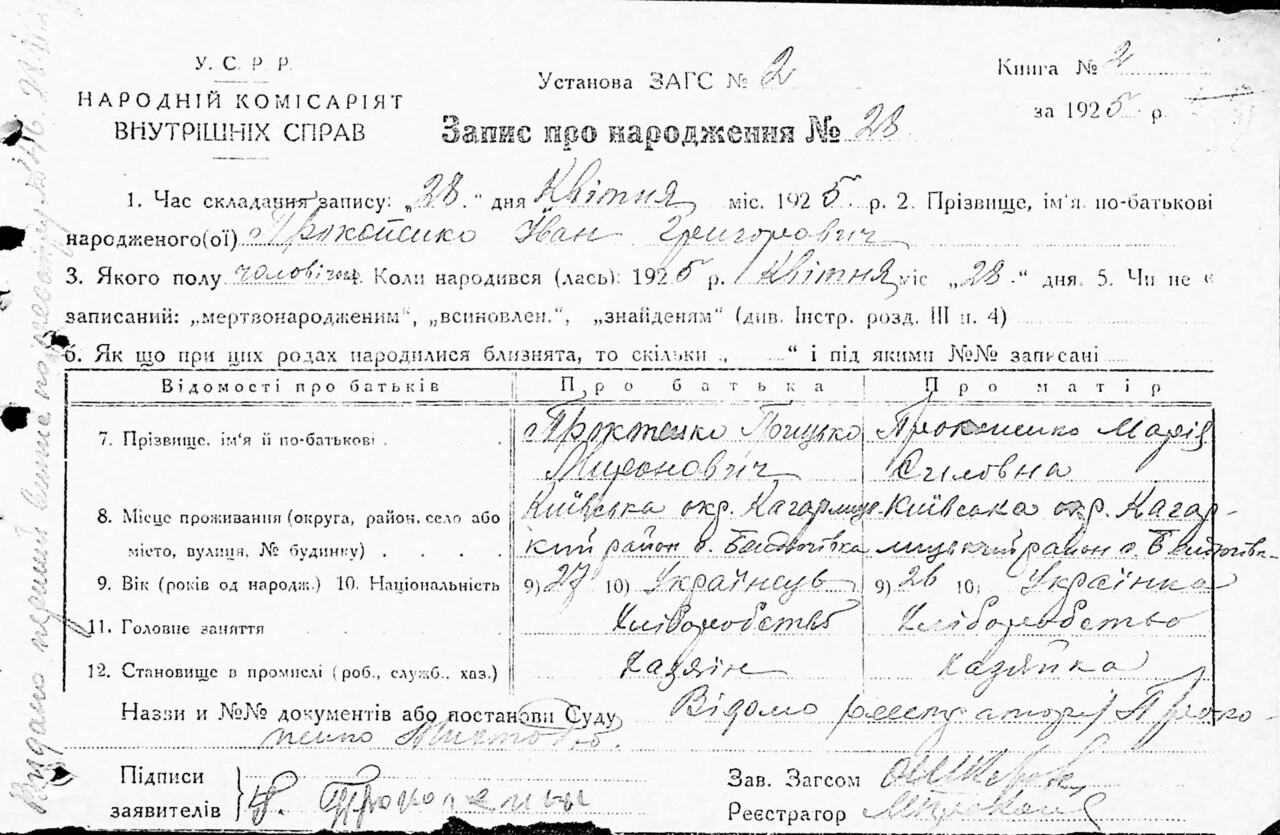 У. С. Р. Р.
НАРОДНІЙ КОМІСАРІЯТ
ВНУТРІШНІХ СПРАВ
Установа ЗАГС № 2
Запис про народження № 28
Книга № 2
за 1925 р.
1. Час складання запису: „28.“ дня Квітня міс. 1925 р. 2. Прізвище, ім'я по-батькові
народженого(ої) Прокопенко Іван Григорович
3. Якого полу чоловічого. Коли народився (лась): 1925 р. Квітня міс „28.“ дня. 5. Чи не є
записаний: „мертвонародженим“, „всиновлен.“, „знайденям“ (див. Інстр. розд. III п. 4)
6. Як що при цих родах народилися близнята, то скільки „ “ і під якими №№ записані
Відомості про батьків Про батька Про матір
7. Прізвище, ім'я й по-батькові Прокопенко Грицько Прокопенко Марія
Миронович
8. Місце проживання (округа, район, село або Київська окр. Кагарлиць Київська окр. Кагар-
місто, вулиця, № будинку) кий район с. лицький район с.
9. Вік (років од народж.) 10. Національність 9) 27 10) Українець 9) 26 10) Українка
11. Головне заняття Хліборобство Хліборобство
12. Становище в промислі (роб., служб., хаз.) Хазяїн Хазяйка
Назви и №№ документів або постанови Суду Відомо реєстратору Проко-
пенко
Підписи
заявителів
Зав. Загсом
Реєстратор
Видано перший витяг по реєстру №